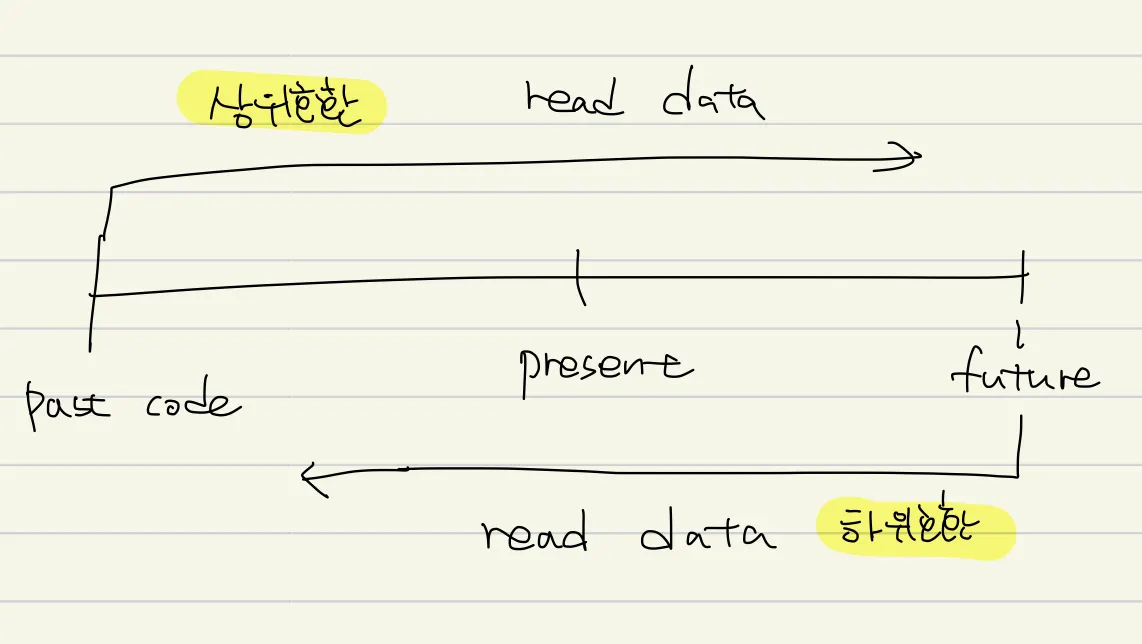 상위호환 read data
present
future
past code
read data 하위호환